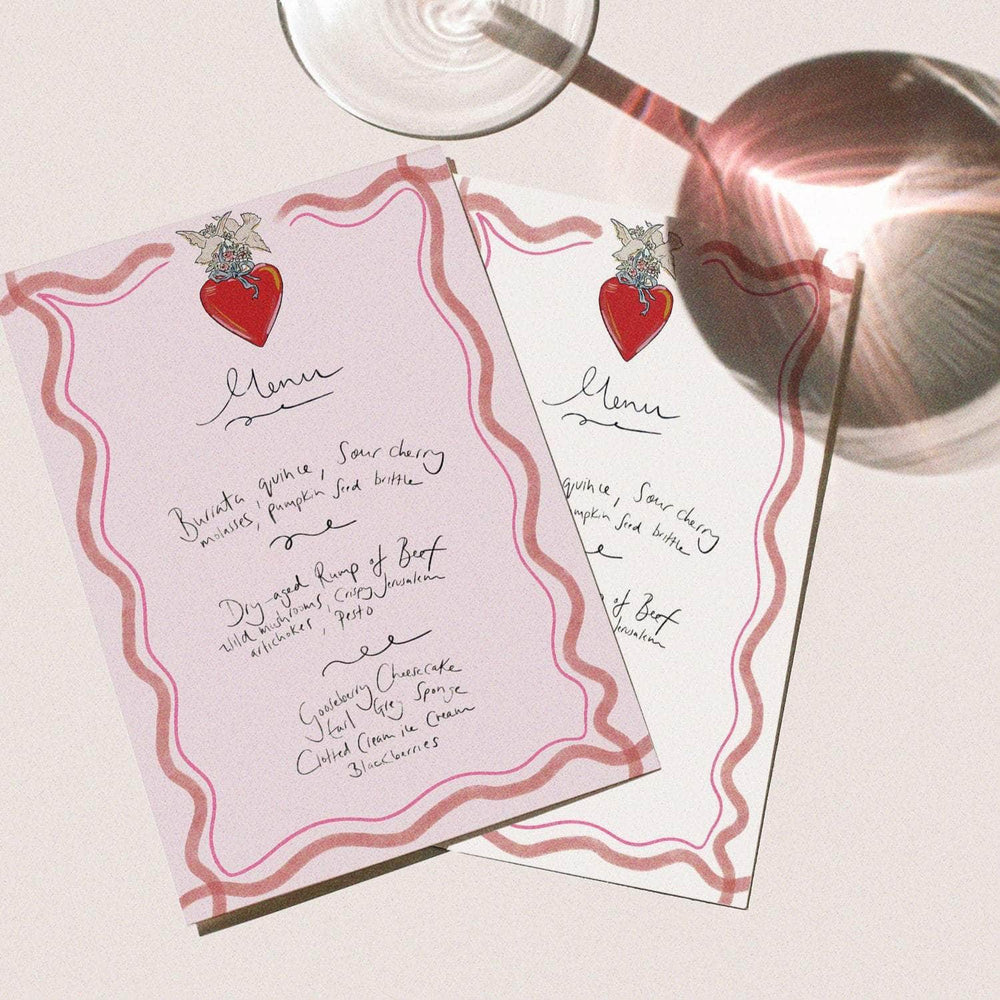 Menu
Burrata, quince, Sour cherry
molasses, pumpkin seed brittle
Dry-aged Rump of Beef
Wild mushrooms, Crispy Jerusalem
artichokes, Pesto
Gooseberry Cheesecake
Earl Grey Sponge
Clotted Cream ice Cream
Blackberries
Menu
quince, Sour cherry
mpkin seed brittle
of Beef
Jerusalem